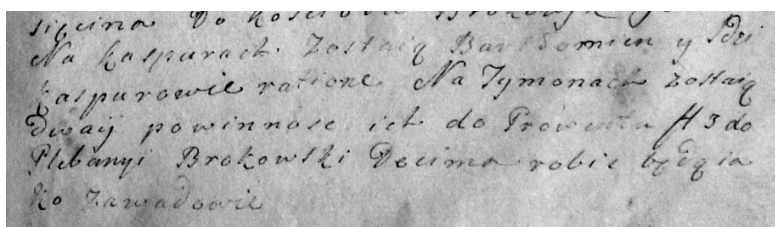 sięcina Do Koscioła Brokowsk
Na Kaspurach Zostaią Bartłomien y Idzi
Kaspurowie ratione Na Tymonach zostaią
dwaÿ powinnosc ich do Prowentu fl 3 do
Plebanyi Brokowski Decima robic będą ia
ko Zawadowie